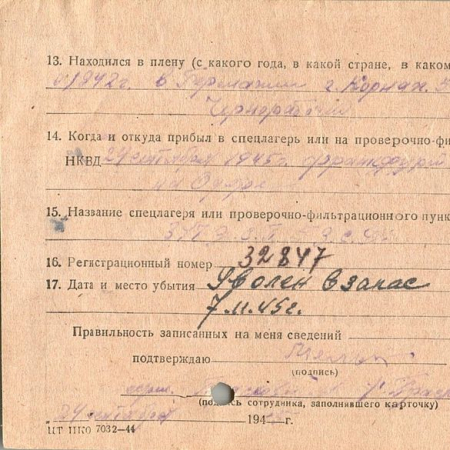 13. Находился в плену (с какого года, в какой стране, в каком
1942г. в Германии г.
Чернорабочий
14. Когда и откуда прибыл в спецлагерь или на проверочно-фи
НКВД 24 сентября 1945г. Франкфурт
на Одере
15. Название спецлагеря или проверочно-фильтрационного пунк
16. Регистрационный номер 32847
17. Дата и место убытия Уволен в запас
7.11.45г.
Правильность записанных на меня сведений
подтверждаю
(подпись)
(подпись сотрудника, заполнявшего карточку)
24 сентября 194 г.
ЦТ НКО 7032—44